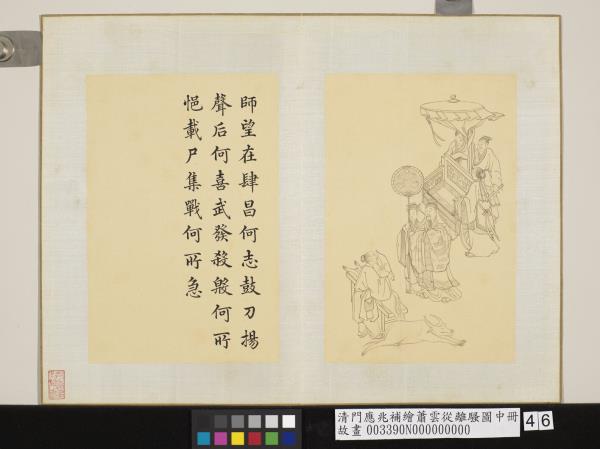 師望在肆昌何志鼓刀揚
聲后何喜武發殺殷何所
悒載尸集戰何所急
清門應兆補繪蕭雲從離騷圖中冊
故畫 003390N000000000
46